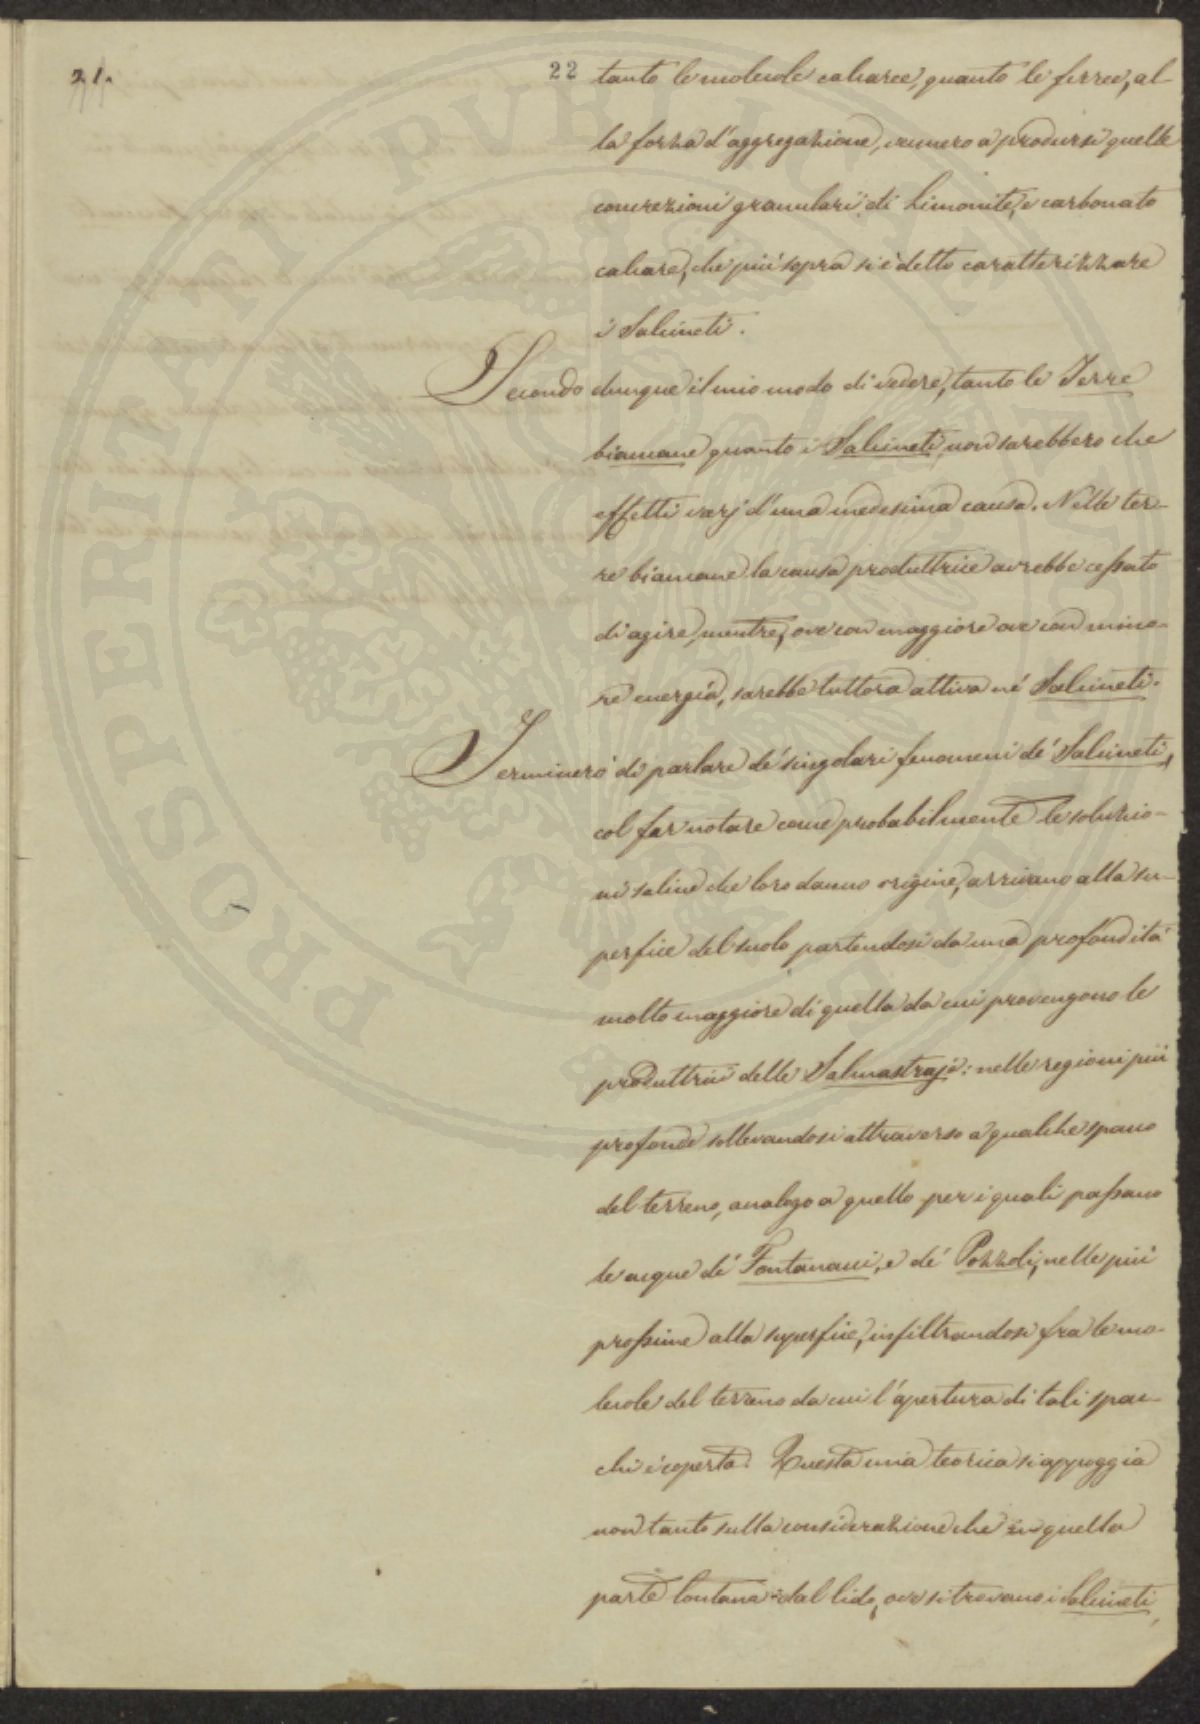 21.
22
tanto le molecole calcaree, quanto le ferree, al-
la forza d'aggregazione, vennero a prodursi quelle
concrezioni granulari di Limonite, e carbonato
calcare, che più sopra si è detto caratterizzare
i Salcineti.
Secondo dunque il mio modo di vedere, tanto le Terre
biancane quanto i Salcineti, non sarebbero che
effetti varj d'una medesima causa. Nelle ter-
re biancane la causa produttrice avrebbe cessato
di agire, mentre, ove con maggiore ove con mino-
re energia, sarebbe tuttora attiva ne' Salcineti.
Terminerò di parlare de' singolari fenomeni de' Salcineti,
col far notare come probabilmente le soluzio-
ni saline che loro danno origine, arrivano alla su-
perfice del suolo partendosi da una profondità
molto maggiore di quella da cui provengono le
produttrici delle Salmastraje: nelle regioni più
profonde sollevandosi attraverso a qualche spacco
del terreno, analogo a quello per i quali passano
le acque di' Fontanacci, e de' Pozzoli, nelle più
prossime alla superfice, infiltrandosi fra le mo-
lecole del terreno da cui l'apertura di tali spac-
chi è coperta. Questa mia teorica si appoggia
non tanto sulla considerazione che in quella
parte lontana dal lido, ove si trovano i Salcineti,
PROSPERITATI PVBLICAE